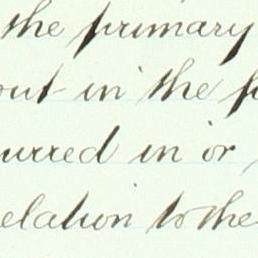 the primary
out in the
urred in or
elation to the